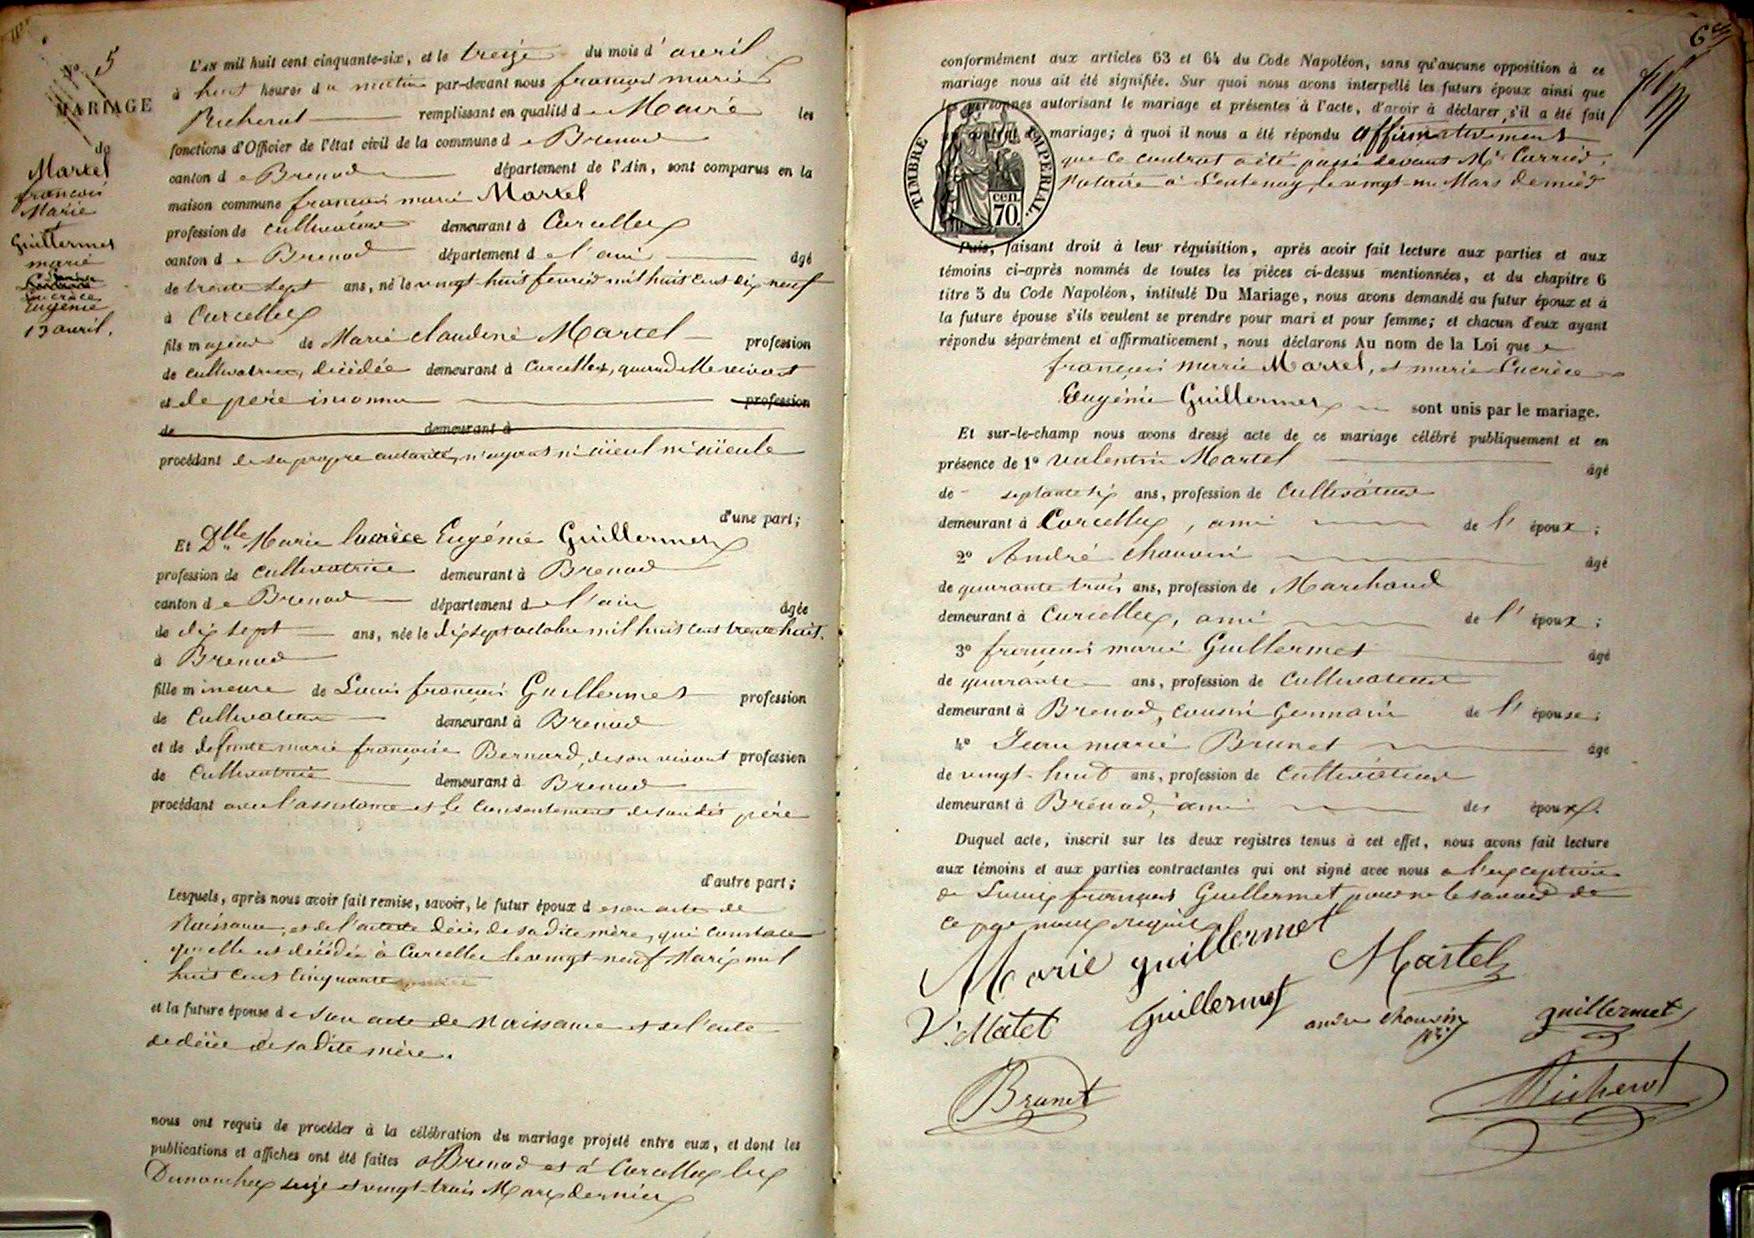 N° 5
MARIAGE
de
Martel
françois
Marie
Guillermet
marie
Lucrèce
Eugénie
13 avril.
L'AN mil huit cent cinquante-six, et le treize du mois d'avril
à huit heures du matin par-devant nous françois marie
Richerot remplissant en qualité de Maire les
fonctions d'Officier de l'état civil de la commune de Brenod
canton de Brenod département de l'Ain, sont comparus en la
maison commune françois marie Martel
profession de cultivateur demeurant à Corcelles
canton de Brenod département de l'ain âgé
de trente sept ans, né le vingt-huit février mil huit cent dix neuf
à Corcelles
fils majeur de Marie claudine Martel profession
de cultivatrice, décédée demeurant à Corcelles, quand elle vivait
et de père inconnu profession
de demeurant à
procédant de sa propre autorité, n'ayant ni aïeul ni aïeule
d'une part;
Et Dlle Marie lucrèce Eugénie Guillermet
profession de cultivatrice demeurant à Brenod
canton de Brenod département de l'ain âgée
de dix sept ans, née le dix sept octobre mil huit cent trente huit.
à Brenod
fille mineure de Louis françois Guillermet profession
de Cultivateur demeurant à Brenod
et de défunte marie françoise Bernard, de son vivant profession
de Cultivatrice demeurant à Brenod
procédant avec l'assistance et le consentement de son dit père
d'autre part;
Lesquels, après nous avoir fait remise, savoir, le futur époux de son acte de
Naissance, et de l'acte de décès de sa dite mère, qui constate
qu'elle est décédée à Corcelles le vingt-neuf Mars mil
huit cent cinquante
et la future épouse de son acte de Naissance et de l'acte
de décès de sa dite mère.
nous ont requis de procéder à la célébration du mariage projeté entre eux, et dont les
publications et affiches ont été faites à Brenod et à Corcelles les
Dimanches seize et vingt-trois Mars dernier
6
conformément aux articles 63 et 64 du Code Napoléon, sans qu'aucune opposition à ce
mariage nous ait été signifiée. Sur quoi nous avons interpellé les futurs époux ainsi que
les personnes autorisant le mariage et présentes à l'acte, d'avoir à déclarer s'il a été fait
un contrat de mariage; à quoi il nous a été répondu affirmativement
que ce contrat a été passé devant Me Carrier,
Notaire à Lantenay, le vingt-un Mars dernier
TIMBRE IMPERIAL.
70 cen.
Puis, faisant droit à leur réquisition, après avoir fait lecture aux parties et aux
témoins ci-après nommés de toutes les pièces ci-dessus mentionnées, et du chapitre 6
titre 5 du Code Napoléon, intitulé Du Mariage, nous avons demandé au futur époux et à
la future épouse s'ils veulent se prendre pour mari et pour femme; et chacun d'eux ayant
répondu séparément et affirmativement, nous déclarons Au nom de la Loi que
françois marie Martel, et marie Lucrèce
Eugénie Guillermet sont unis par le mariage.
Et sur-le-champ nous avons dressé acte de ce mariage célébré publiquement et en
présence de 1° valentin Martel âgé
de septante six ans, profession de Cultivateur
demeurant à Corcelles, ami de l'époux;
2° André Chauvin âgé
de quarante trois ans, profession de Marchand
demeurant à Corcelles, ami de l'époux;
3° françois marie Guillermet âgé
de quarante ans, profession de Cultivateur
demeurant à Brenod, cousin Germain de l'épouse;
4° Jean marie Brunet âgé
de vingt-huit ans, profession de Cultivateur
demeurant à Brenod, ami des époux.
Duquel acte, inscrit sur les deux registres tenus à cet effet, nous avons fait lecture
aux témoins et aux parties contractantes qui ont signé avec nous à l'exception
de Louis françois Guillermet, pour ne le savoir de
ce par nous requis
Marie guillermet Martel
V. Matet Guillermet andre Chauvin guillermet
Brunet Richerot